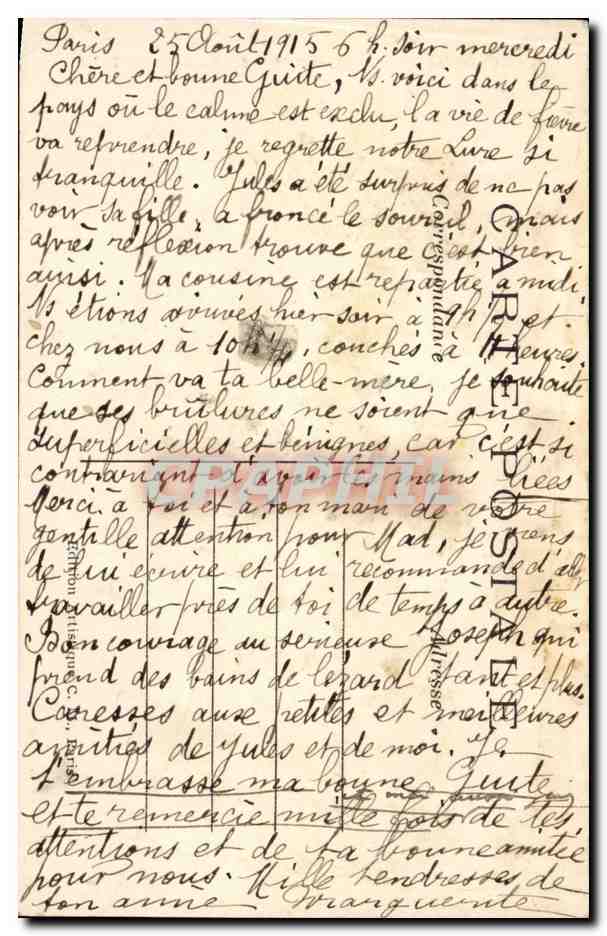 Paris 25 Août 1915 6 h. soir mercredi
Chère et bonne Guite, Ns. voici dans le
pays où le calme est exclu, la vie de fièvre
va reprendre, je regrette notre Lure si
tranquille. Jules a été surpris de ne pas
voir sa fille, a froncé le sourcil, mais
après réflexion trouve que c'est bien
ainsi. Ma cousine est repartie à midi.
Ns étions arrivés hier soir à 9h½ et
chez nous à 10h¼, couchés à heures.
Comment va ta belle-mère, je souhaite
que ses brûlures ne soient que
superficielles et bénignes, car c'est si
contrariant d'avoir les mains liées
Merci à toi et à ton mari de votre
gentille attention pour Mad, je viens
de lui écrire et lui recommande d'aller
travailler près de toi de temps à autre.
Bon courage au sérieuse Joseph qui
prend des bains de lézard tant et plus.
Caresses aux petites et meilleures
amitiés de Jules et de moi. Je
t'embrasse ma bonne Guite
et te remercie mille fois de tes
attentions et de ta bonne amitié
pour nous. Mille tendresses de
ton amie Marguerite
CARTE POSTALE
Correspondance
Adresse
Edition Artistique, C. Paris
CPAPHIL